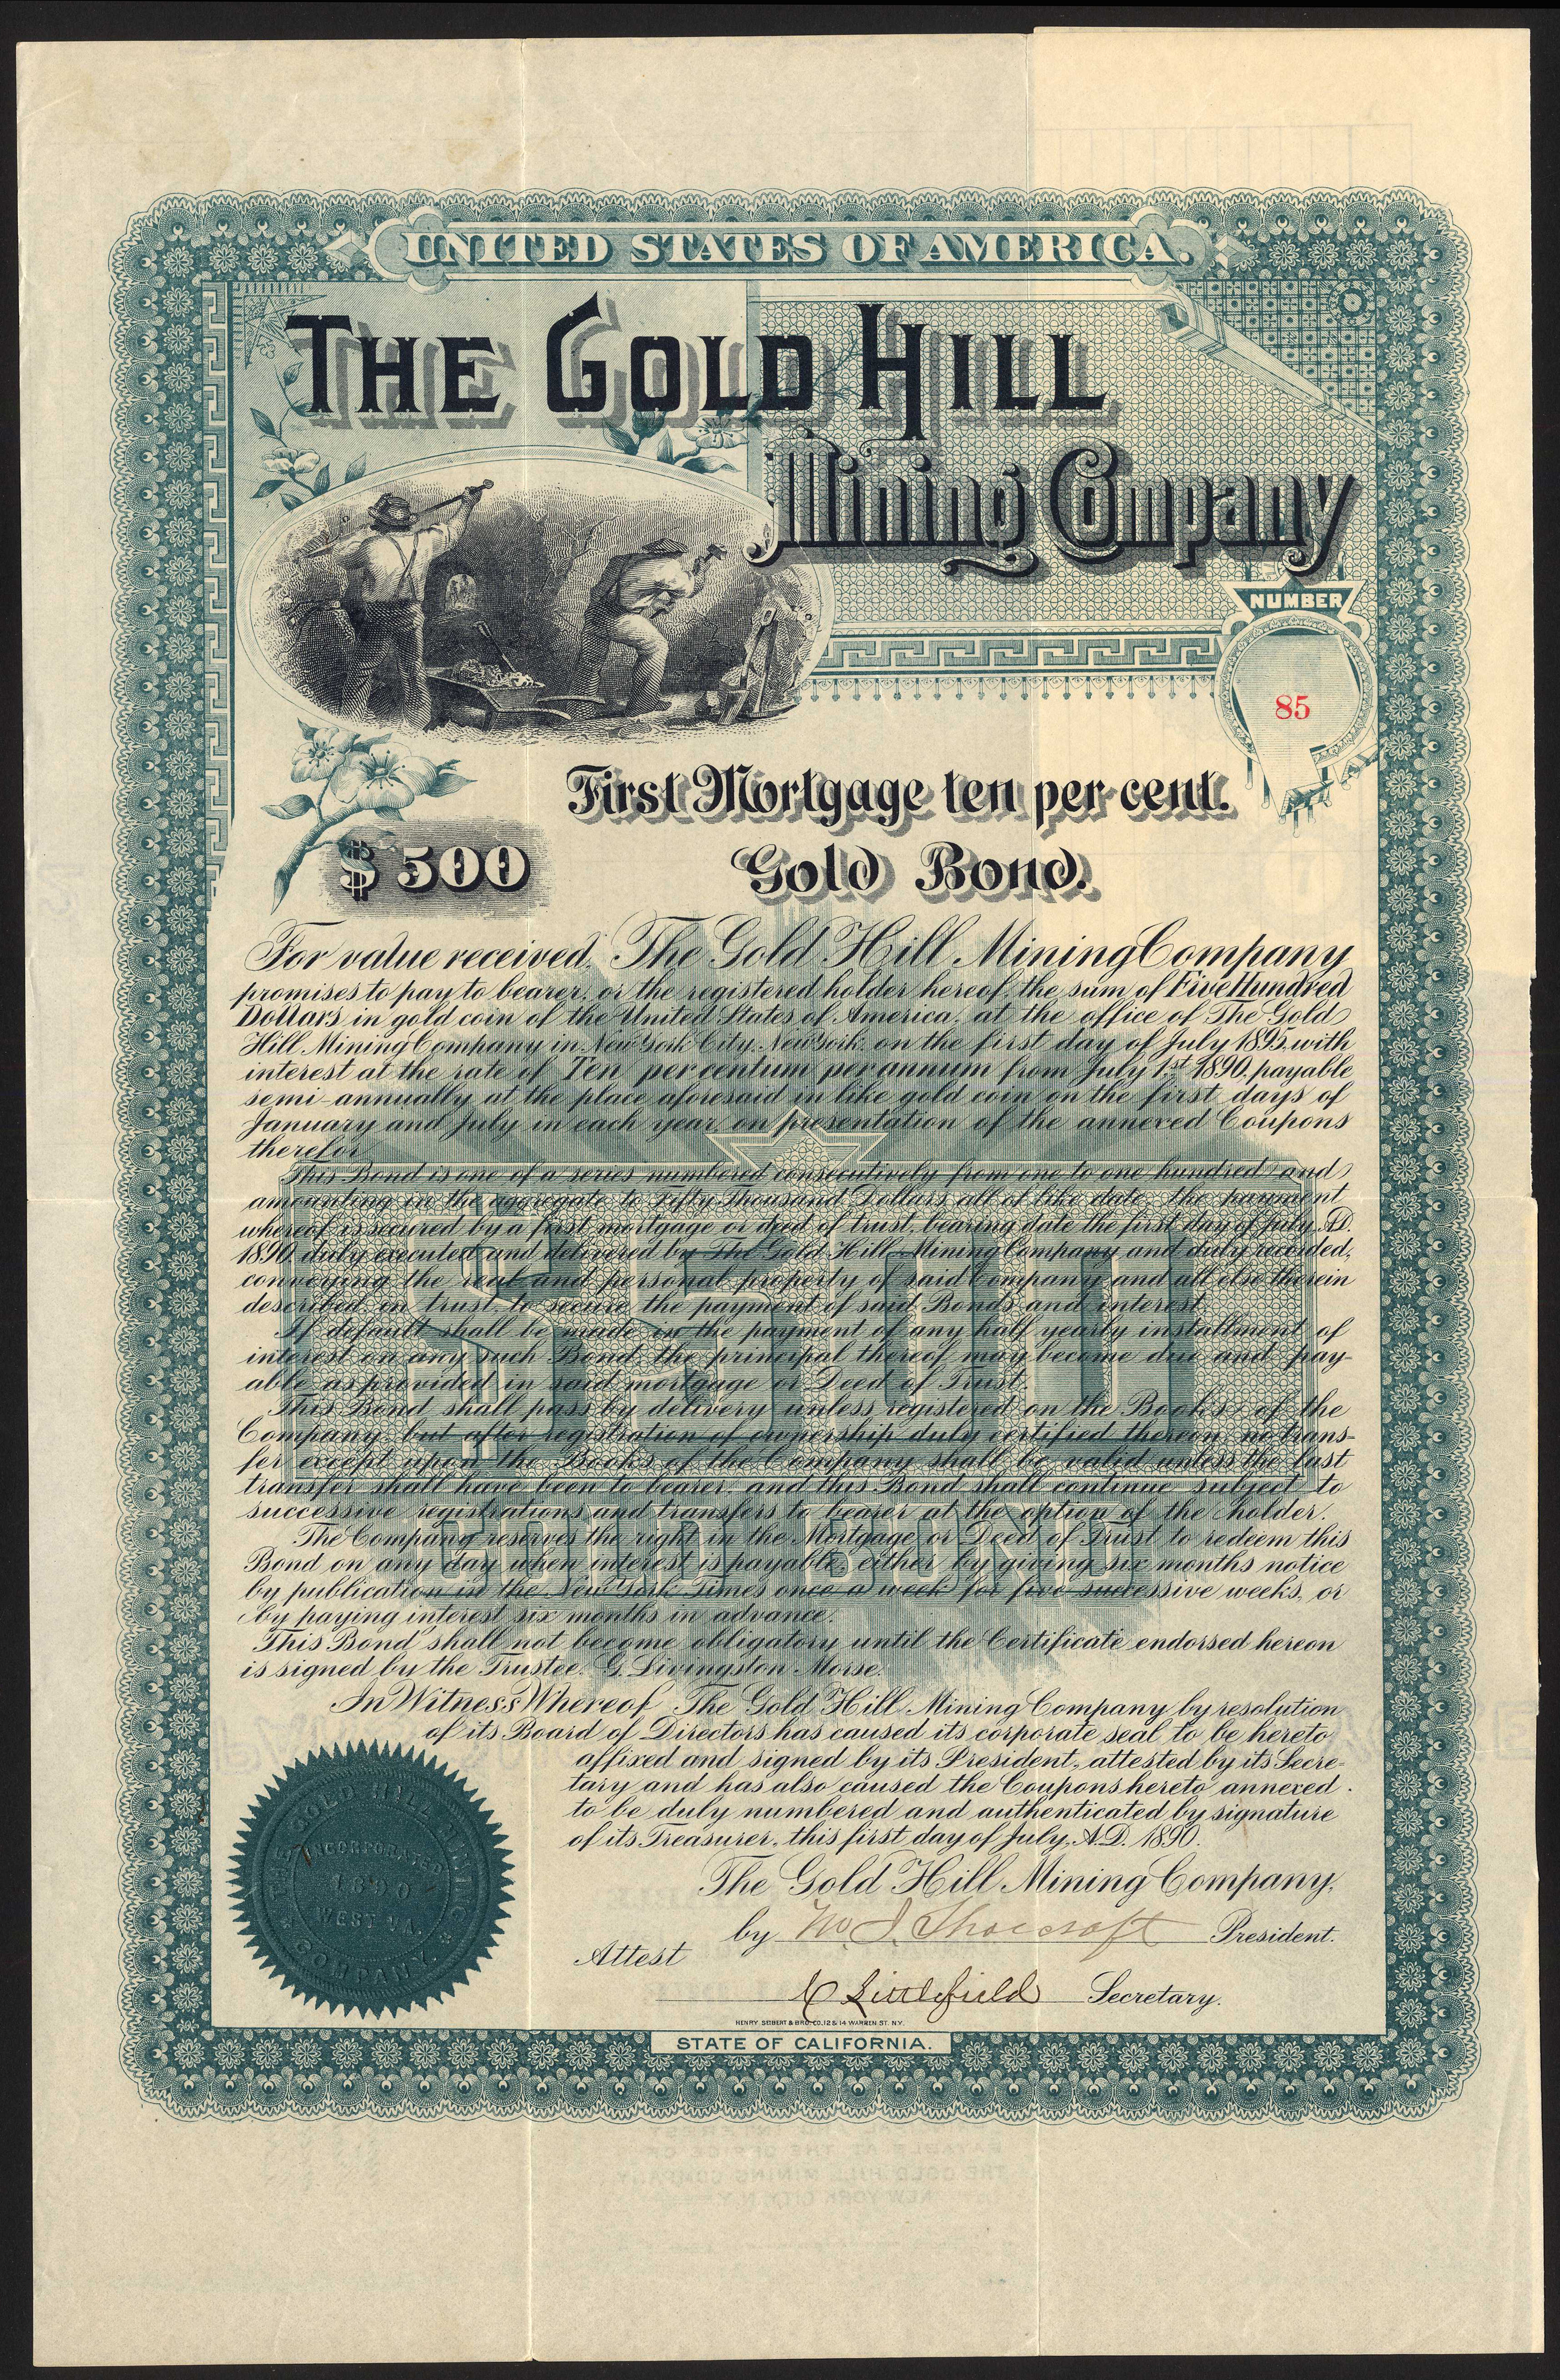 UNITED STATES OF AMERICA.
THE GOLD HILL
Mining Company
NUMBER
85
First Mortgage ten per cent.
$500
Gold Bond.
For value received, The Gold Hill Mining Company
promises to pay to bearer, or the registered holder hereof, the sum of Five Hundred
Dollars in gold coin of the United States of America, at the office of The Gold
Hill Mining Company in New York City, New York, on the first day of July 1895, with
interest at the rate of Ten per centum per annum from July 1st 1890, payable
semi-annually at the place aforesaid in like gold coin on the first days of
January and July in each year, on presentation of the annexed Coupons
therefor.
This Bond is one of a series numbered consecutively from one to one hundred and
amounting in the aggregate to Fifty Thousand Dollars all of like date, the payment
whereof is secured by a first mortgage or deed of trust, bearing date the first day of July A.D.
1890, duly executed and delivered by The Gold Hill Mining Company and duly recorded,
conveying the real and personal property of said Company and all else therein
described, in trust, to secure the payment of said Bonds and interest.
If default shall be made in the payment of any half yearly installment of
interest on any such Bond, the principal thereof may become due and pay-
able as provided in said mortgage or Deed of Trust.
This Bond shall pass by delivery unless registered on the Books of the
Company, but after registration of ownership duly certified thereon, no trans-
fer except upon the Books of the Company shall be valid unless the last
transfer shall have been to bearer, and this Bond shall continue subject to
successive registrations and transfers to bearer at the option of the holder.
The Company reserves the right in the Mortgage or Deed of Trust to redeem this
Bond on any day when interest is payable, either by giving six months notice
by publication in the New York Times once a week for five successive weeks, or
by paying interest six months in advance.
This Bond shall not become obligatory until the Certificate endorsed hereon
is signed by the Trustee, G. Livingston Morse.
$500
GOLD BOND
In Witness Whereof, The Gold Hill Mining Company by resolution
of its Board of Directors has caused its corporate seal to be hereto
affixed and signed by its President, attested by its Secre-
tary and has also caused the Coupons hereto annexed
to be duly numbered and authenticated by signature
of its Treasurer, this first day of July, A.D. 1890.
THE GOLD HILL MINING COMPANY.
INCORPORATED
1890
WEST VA.
The Gold Hill Mining Company,
by W. J. Shoecroft President.
Attest
C Littlefield Secretary.
HENRY SEIBERT & BRO. CO. 12 & 14 WARREN ST. N.Y.
STATE OF CALIFORNIA.
PAYABLE AT THE OFFICE OF
THE GOLD HILL MINING COMPANY,
NEW YORK CITY, N.Y.